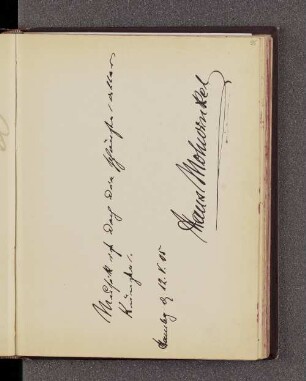 Musik ist doch das Schönste aller
Künste.
Hamburg d. 12.V.05
Hans Mohwinkel